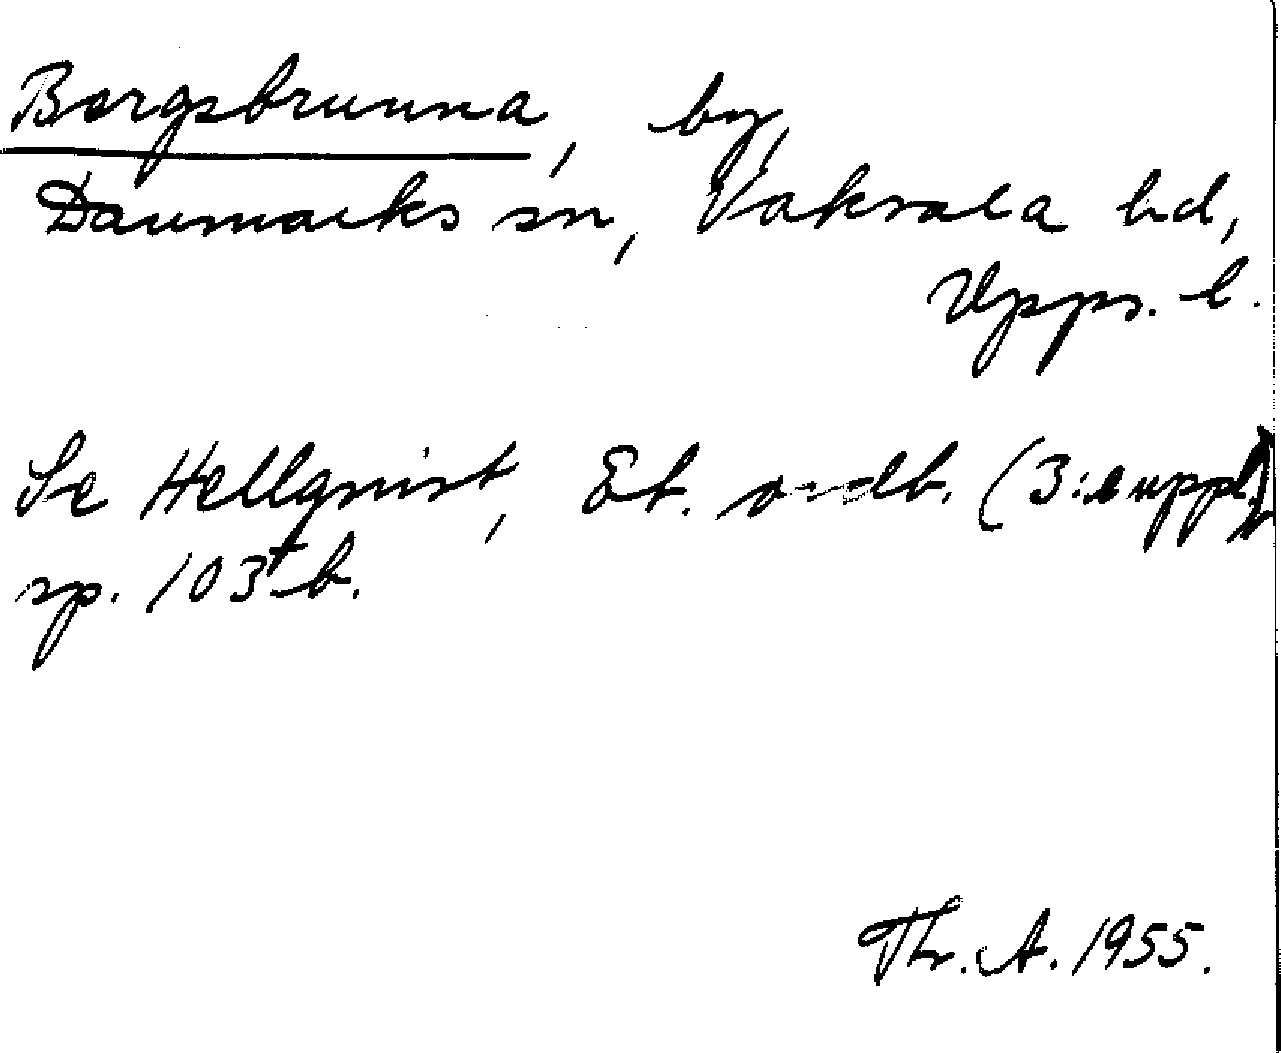 Bergsbrunna, by,
Danmarks sn, Vaksala hd,
Upps. l.
Se Hellqvist, Et. ordb. (3:e uppl.)
sp. 103 b.
Thr. A. 1955.